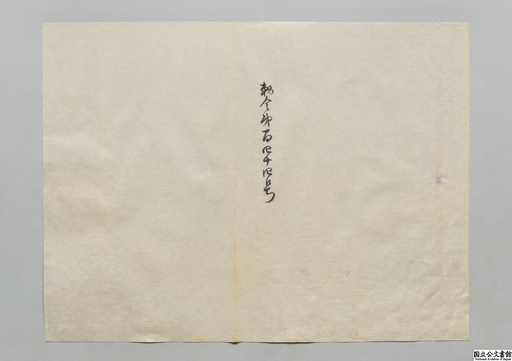 勅令第百四十四号
国立公文書館
National Archives of Japan